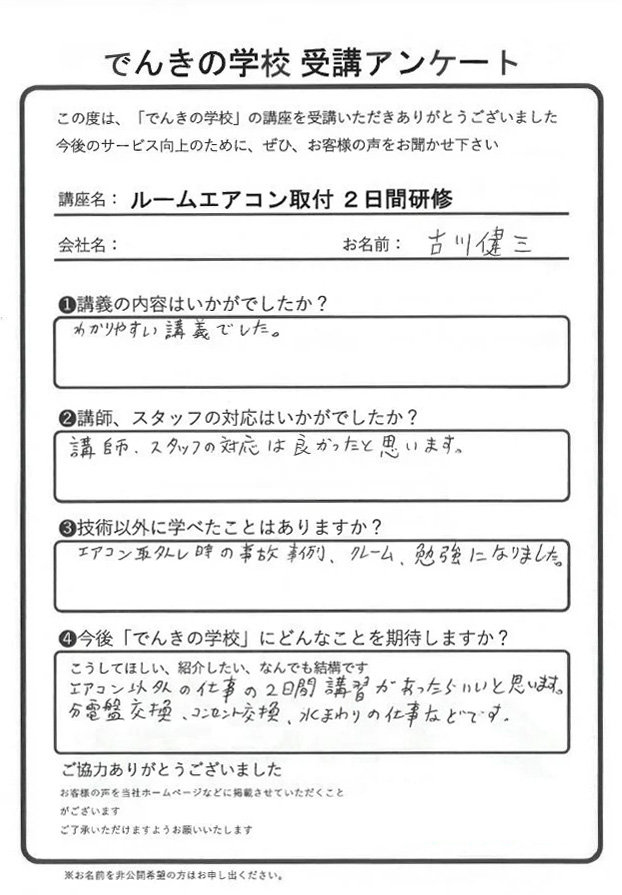 でんきの学校 受講アンケート
この度は、「でんきの学校」の講座を受講いただきありがとうございました
今後のサービス向上のために、ぜひ、お客様の声をお聞かせ下さい
講座名： ルームエアコン取付 2日間研修
会社名： お名前： 古川健三
❶講義の内容はいかがでしたか？
わかりやすい講義でした。
❷講師、スタッフの対応はいかがでしたか？
講師、スタッフの対応は良かったと思います。
❸技術以外に学べたことはありますか？
エアコン取外し時の事故事例、クレーム、勉強になりました。
❹今後「でんきの学校」にどんなことを期待しますか？
こうしてほしい、紹介したい、なんでも結構です
エアコン以外の仕事の2日間講習があったらいいと思います。
分電盤交換、コンセント交換、水まわりの仕事などです。
ご協力ありがとうございました
お客様の声を当社ホームページなどに掲載させていただくこと
がございます
ご了承いただけますようお願いいたします
※お名前を非公開希望の方はお申し出ください。